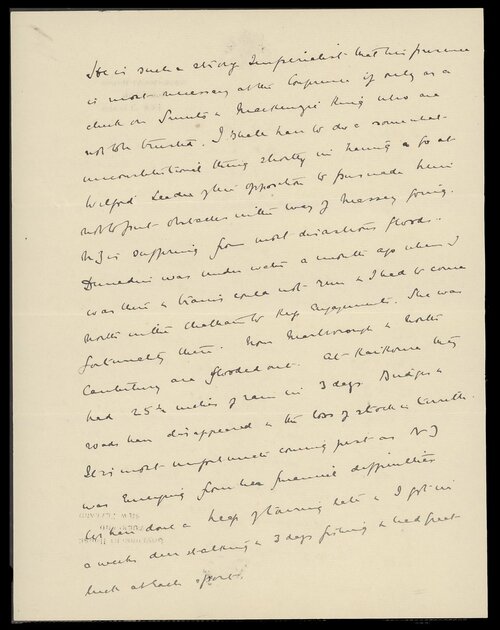 He is such a strong Imperialist that his presence
is most necessary at the Conference if only as a
check on Smuts & Mackenzie King who are
not to be trusted. I shall have to do a somewhat
unconstitutional thing shortly in having a go at
Wilford Leader of the opposition to persuade him
not to put obstacles in the way of Massey going.
N Z is suffering from most disastrous floods.
Dunedin was under water a month ago when I
was there & trains could not run & I had to come
North in the Chatham to keep engagements. She was
fortunately there. Now Marlborough & North
Canterbury are flooded out. At Kaikoura they
had 25 inches of rain in 3 days. Bridges &
roads have disappeared & the loss of stock is terrible.
It is most unfortunate coming just as N Z
was emerging from her financial difficulties
We have done a heap of touring late & I got in
a weeks deer stalking & 3 days fishing & had great
luck at each sport.